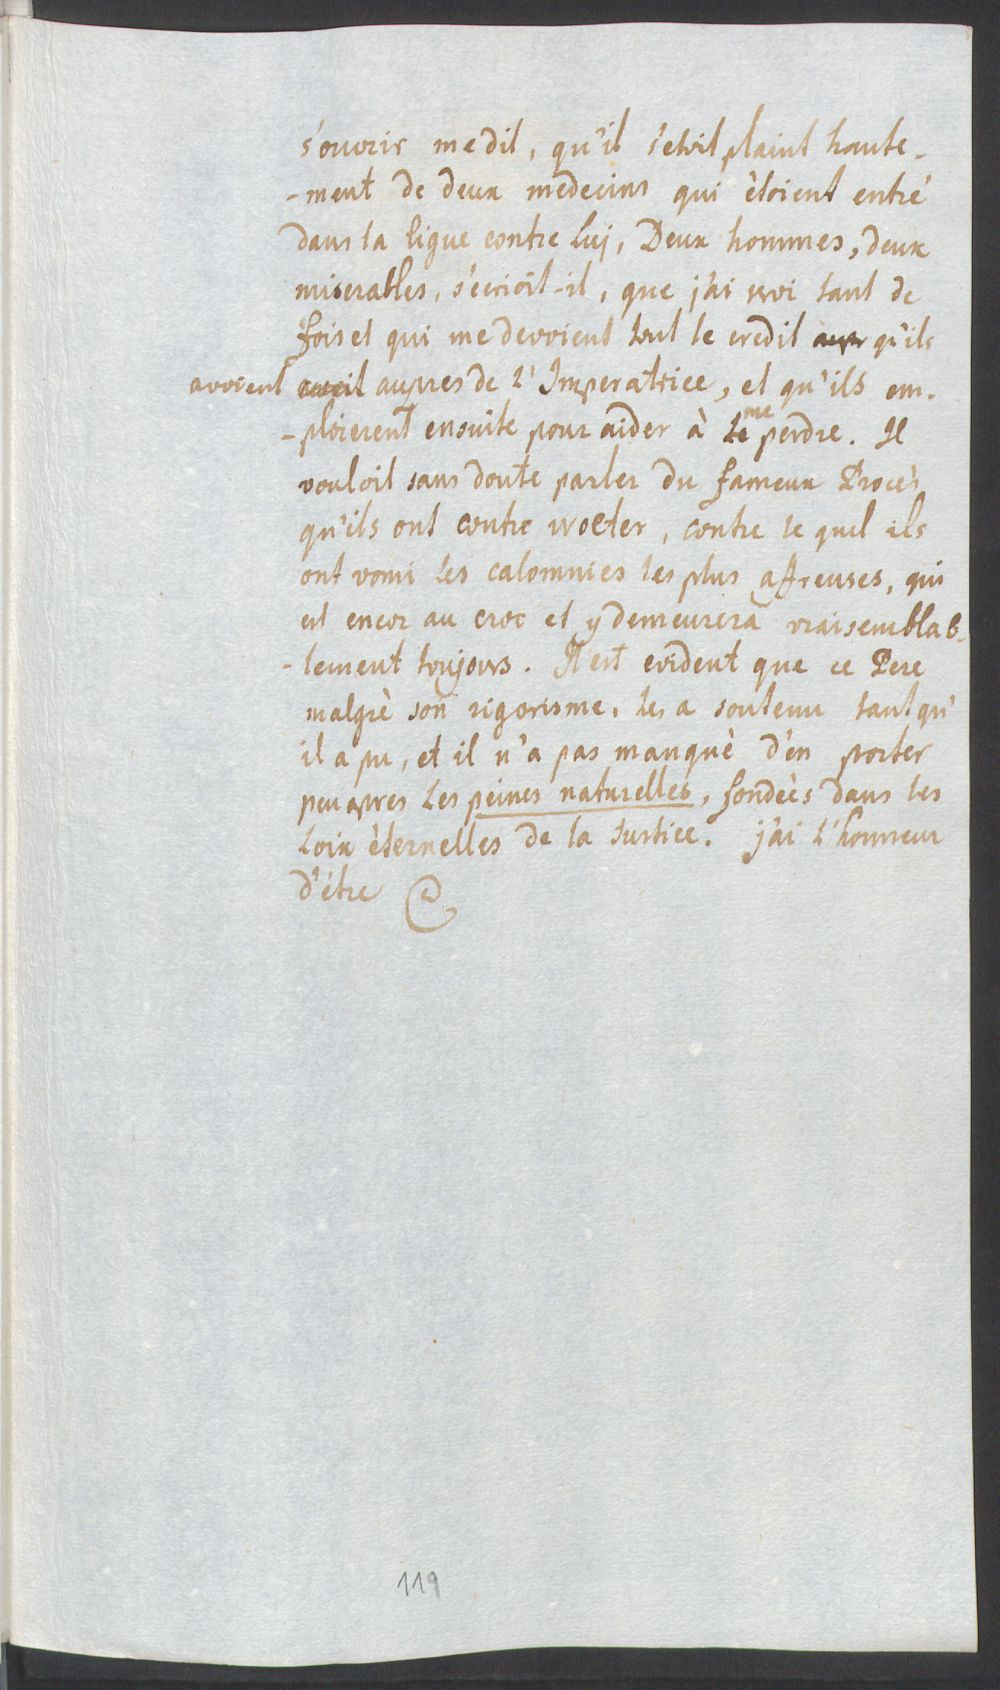 s'ouvrir me dit, qu'il s'etoit plaint haute-
-ment de deux medecins qui ètoient entré
dans la ligue contre luj, Deux hommes, deux
miserables, s'écrioit-il, que j'ai servi tant de
fois et qui me devoient tout le credit qu'ils
avoient aupres de l'Imperatrice, et qu'ils em-
-ploierent ensuite pour aider à me perdre. Il
vouloit sans doute parler du fameux Procès
qu'ils ont contre wolter, contre le quel ils
ont vomi les calomnies les plus affreuses, qui
est encor au croc et y demeurera vraisemblab-
-lement toujours. Il est evident que ce Pere
malgrè son rigorisme, les a soutenu tant qu'
il a pu, et il n'a pas manquè d'en porter
peu apres les peines naturelles, fondeès dans les
loix èternelles de la Justice. j'ai l'honneur
d'étre
119